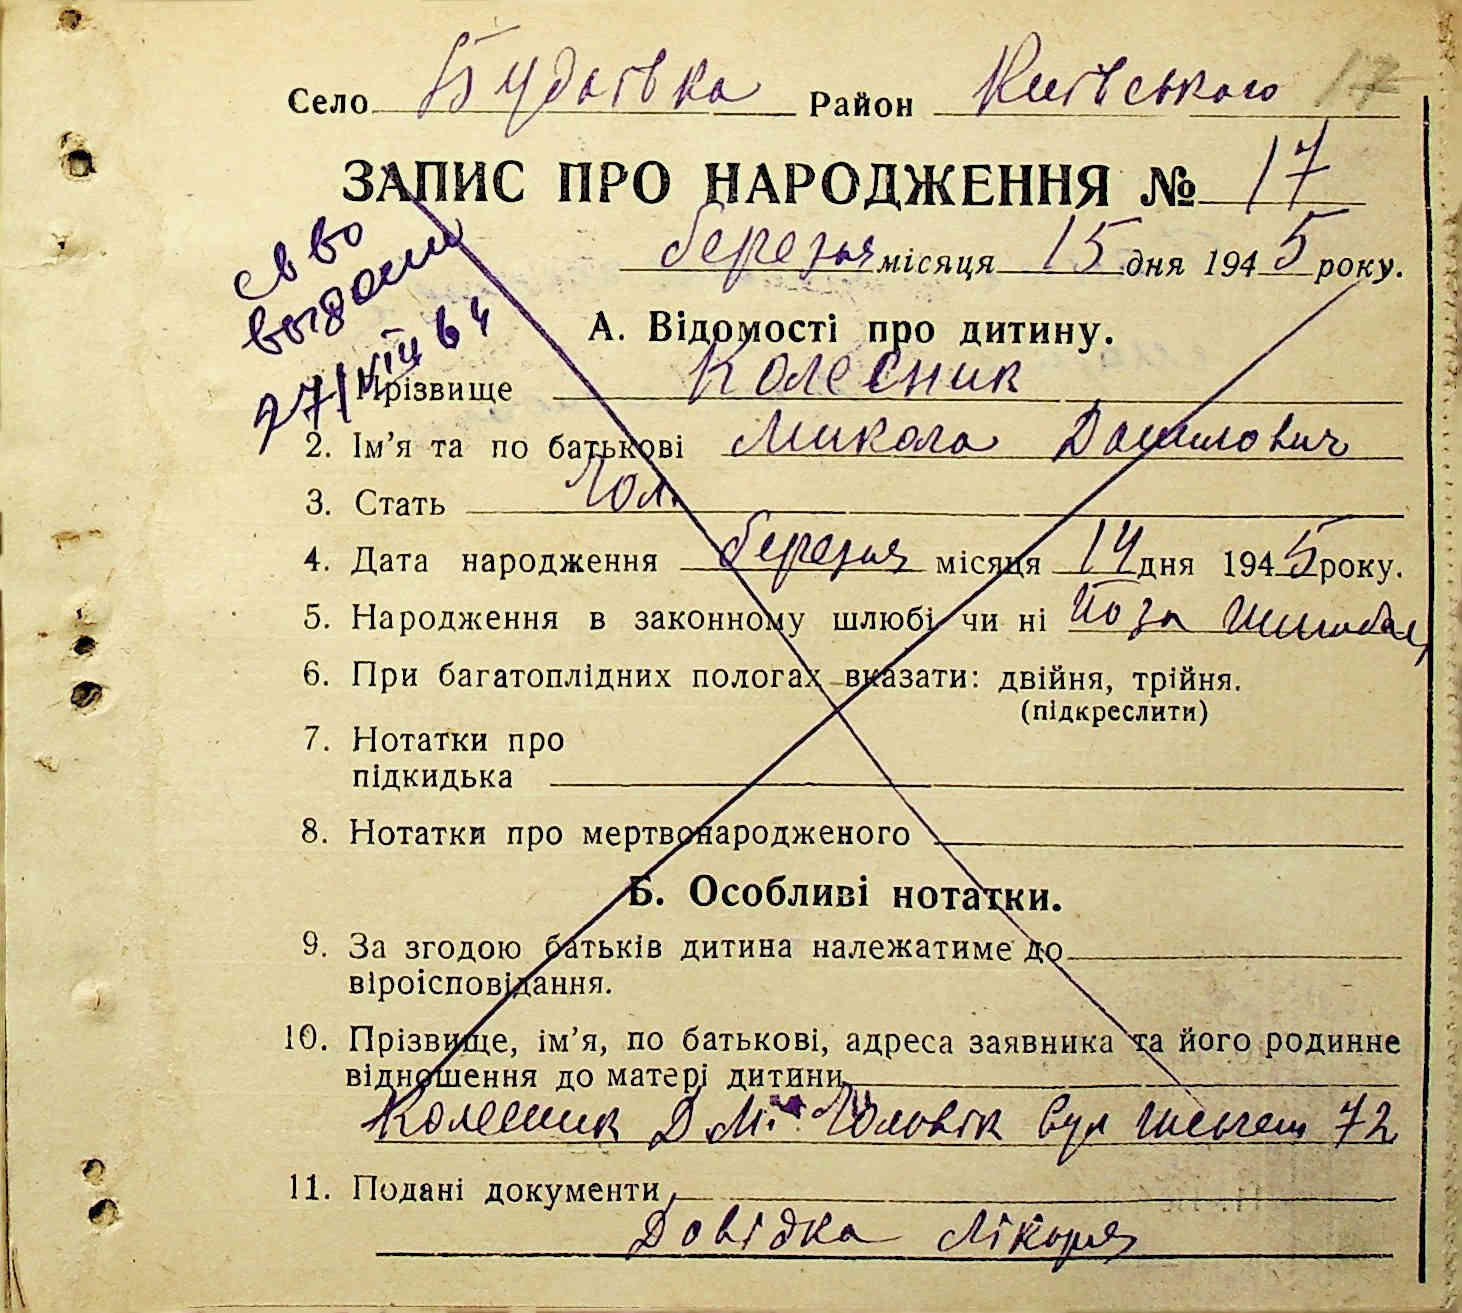 Село Будаївка Район Київського 17
ЗАПИС ПРО НАРОДЖЕННЯ № 17
березня місяця 15 дня 1945 року.
св во
выдан
27/VIII 64
А. Відомості про дитину.
Прізвище Колесник
2. Ім'я та по батькові Микола Данилович
3. Стать Чол.
4. Дата народження березня місяця 14 дня 1945 року.
5. Народження в законному шлюбі чи ні По за шлюбом
6. При багатоплідних пологах вказати: двійня, трійня.
(підкреслити)
7. Нотатки про
підкидька
8. Нотатки про мертвонародженого
Б. Особливі нотатки.
9. За згодою батьків дитина належатиме до
віроісповідання.
10. Прізвище, ім'я, по батькові, адреса заявника та його родинне
відношення до матері дитини
Колесник Д. М. Чоловік вул 72
11. Подані документи
Довідка Лікаря